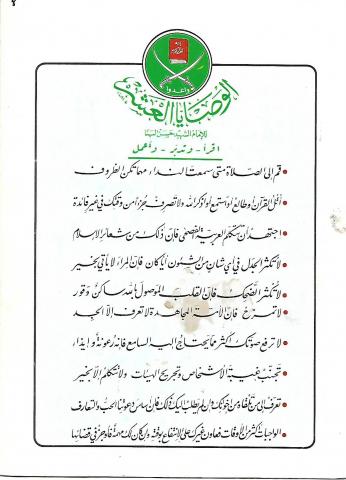 وأعدوا
الوصايا العشر
للإمام الشهيد حسن البنا
اقرأ - وتدبر - وأعمل
• قم إلى الصلاة متى سمعت النداء مهما تكن الظروف
أتل القرآن أو طالع أو استمع أو اذكر الله ولا تصرف جزءاً من وقتك في غير فائدة
اجتهد أن تتكلم العربية الفصحى فإن ذلك من شعائر الإسلام
• لا تكثر الجدل في أي شأن من الشئون أياً كان فإن المراء لا يأتي بخير
• لا تكثر الضحك فإن القلب الموصول بالله ساكن وقور
• لا تمزح فإن الأمة المجاهدة لا تعرف إلا الجد
• لا ترفع صوتك أكثر مما يحتاج إليه السامع فإنه رعونة وإيذاء
• تجنب غيبة الأشخاص وتجريح الهيئات ولا تتكلم إلا بخير
• تعرف إلى من تلقاه من إخوانك وإن لم يطلب إليك ذلك فإن أساس دعوتنا الحب والتعارف
• الواجبات أكثر من الأوقات فعاون غيرك على الإنتفاع بوقته وإن كان لك مهمة فأوجز في قضائها